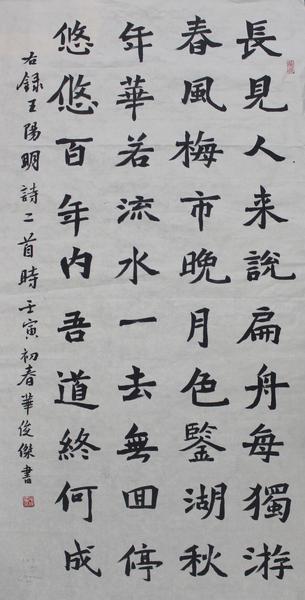 長見人来説扁舟每獨游
春風梅市晚月色鑒湖秋
年華若流水一去無回停
悠悠百年内吾道終何成
右錄王陽明詩二首時壬寅初春華俊傑書